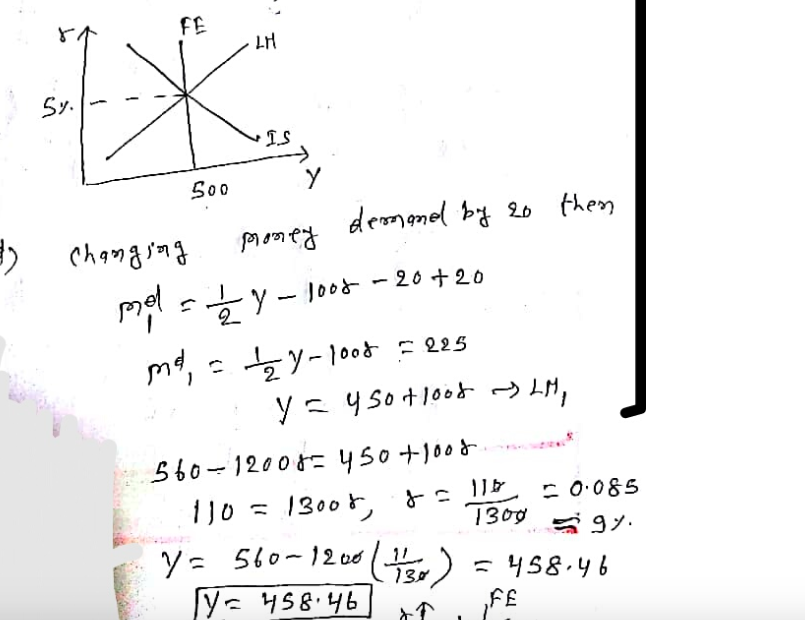 r FE
LM
5%
IS
500 Y
d) Changing money demand by 20 then
md1 = 1/2 Y - 100r - 20 + 20
md1 = 1/2 Y - 100r = 225
Y = 450 + 100r → LM1
560 - 1200r = 450 + 100r
110 = 1300r, r = 110/1300 = 0.085
≈ 9%.
Y = 560 - 1200 (11/130) = 458.46
Y = 458.46
r FE